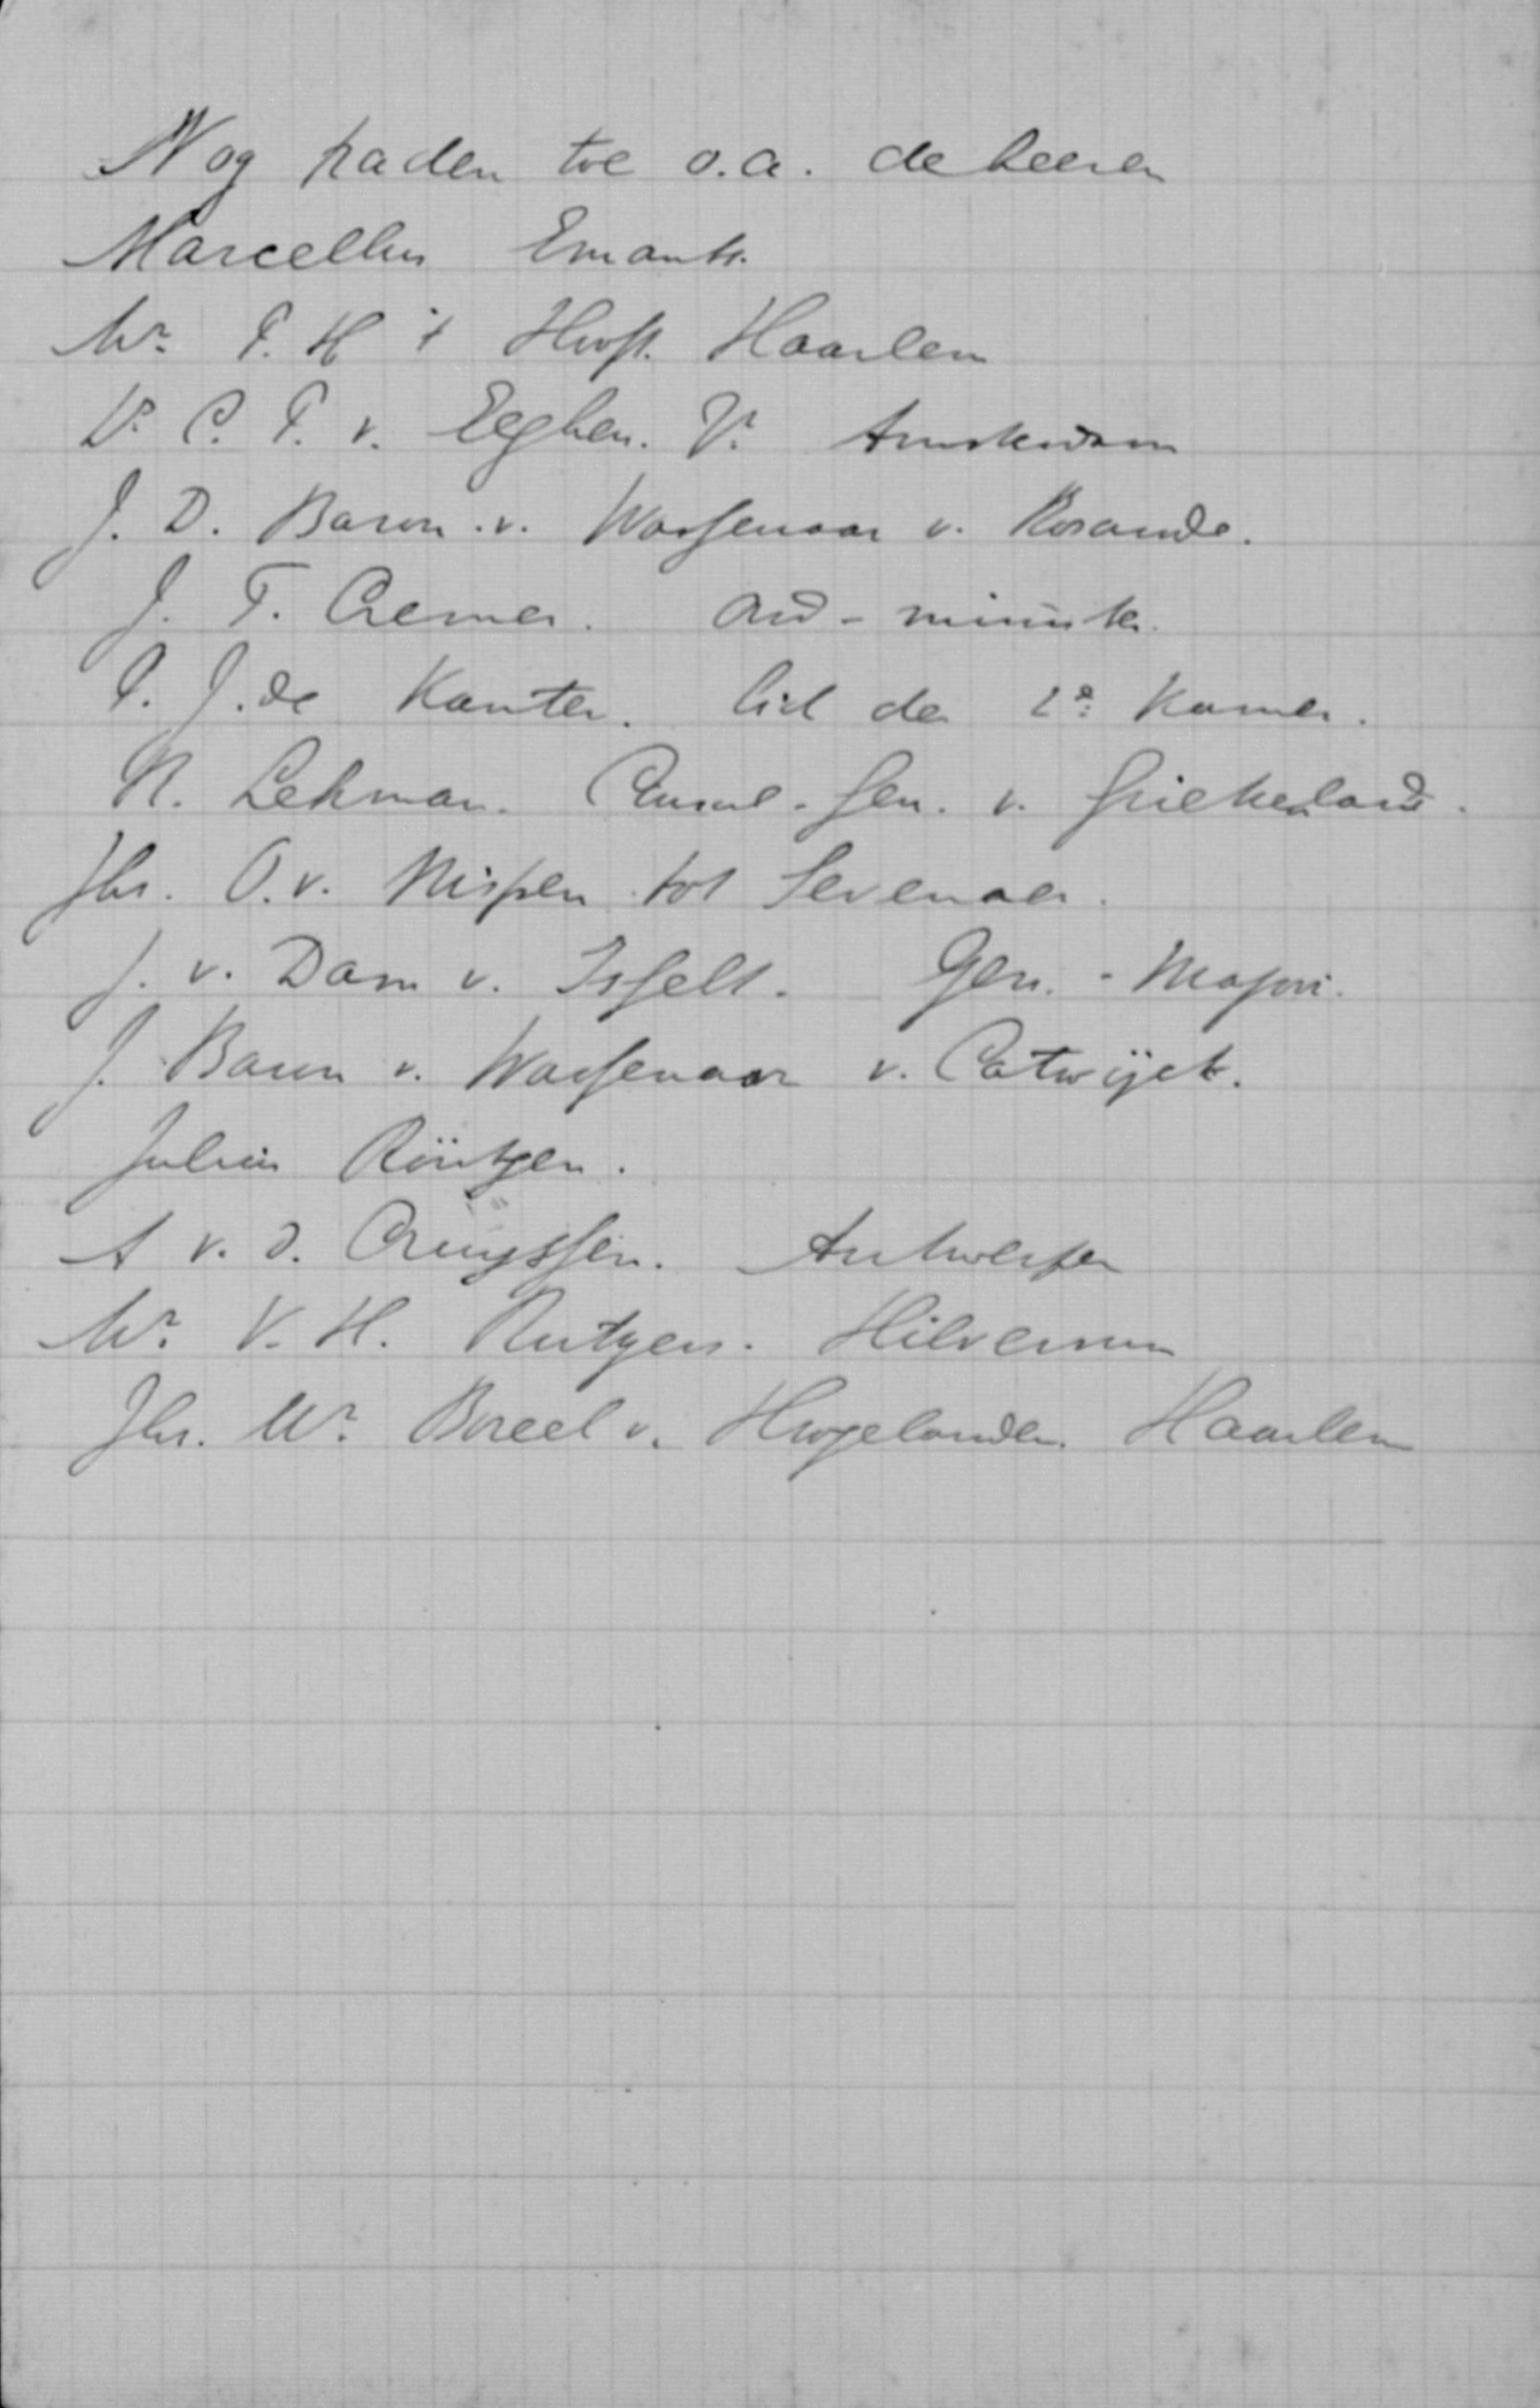 Nog traden toe o.a. de heeren
Marcellus Emants.
Mr. P. H 't Hooft. Haarlem
Dr. C. P. v. Eeghen. Jr. Amsterdam
J. D. Baron v. Wassenaar v. Rosande.
J. T. Cremer. Oud-minister.
P. J. de Kanter. lid der 2e Kamer.
N. Lehman. Consul-Gen. v. Griekenland.
Jhr. O. v. Nispen tot Sevenaer.
J. v. Dam v. Isselt. Gen.-Majoor.
J. Baron v. Wassenaar v. Catwijck.
Julius Röntgen.
A v. d. Cruyssen. Antwerpen
Mr. V. H. Rutgers. Hilversum
Jhr. Mr. Boreel v. Hogelanden. Haarlem